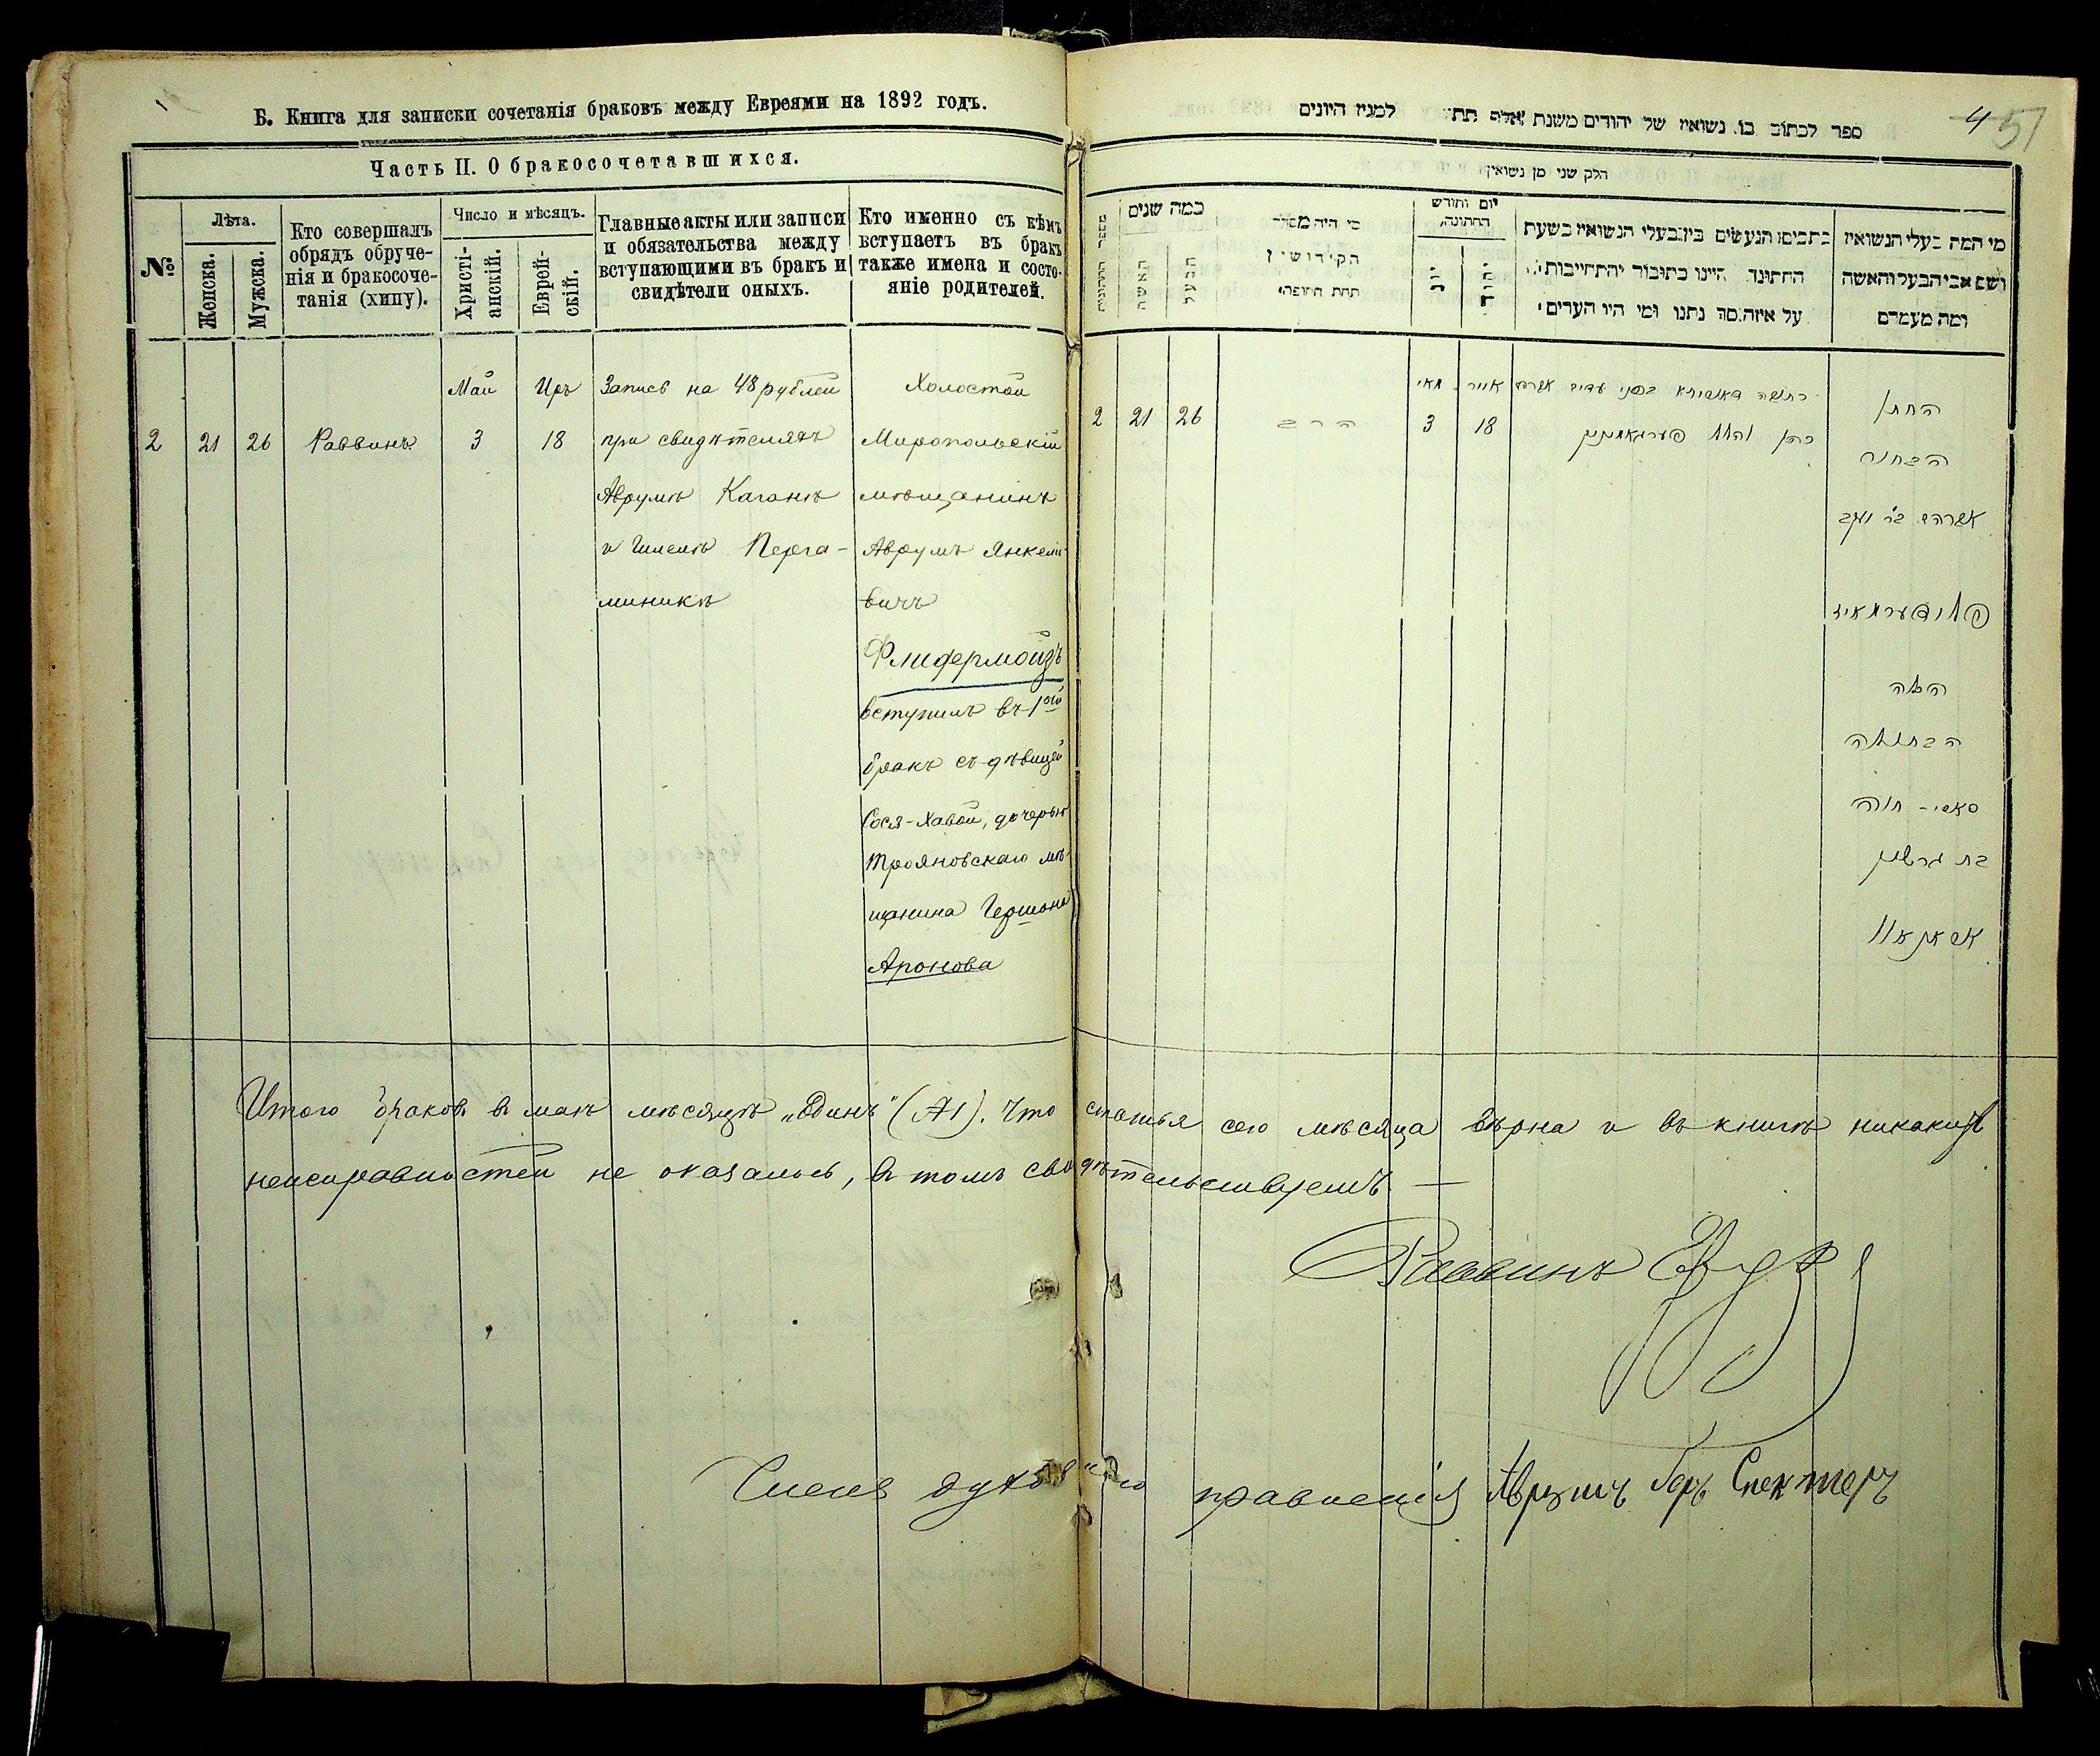 Б. Книга для записки сочетанія браковъ между Евреями на 1892 годъ.
Часть II. О бракосочетавшихся.
№
Лѣта.
Женска.
Мужска.
Кто совершалъ
обрядъ обруче-
нія и бракосоче-
танія (хипу).
Число и мѣсяцъ.
Христі-
анскій.
Еврей-
скій.
Главные акты или записи
и обязательства между
вступающими въ бракъ и
свидѣтели оныхъ.
Кто именно съ кѣмъ
вступаетъ въ бракъ
также имена и состо-
яніе родителей.
Май Иръ Запись на 48 рублей Холостой
2 21 26 Раввинъ 3 18 при свидѣтеляхъ Миропольскій
Аврумѣ Каганѣ мѣщанинъ
и Перга- Аврумъ Янкеле-
миникѣ вичъ
Флидермойзъ
вступилъ въ 1ый
бракъ съ дѣвицей
Сося-Хавой, дочерью
Трояновскаго мѣ-
щанина Гершона
Аронова
ספר לכתוב בו נשואין של יהודים משנת אלף תת למנין היונים
4 51
חלק שני מן נשואין
כמה שנים
האשה
הבעל
מי היה מסדר
הקידושין
תחת החופה
יום וחודש
החתונה
יוני
יהודי
כתבים הנעשים בין בעלי הנשואין בשעת
החתונה היינו כתובות והתחייבות
על איזה סך נתנו ומי היו העדים
מי המה בעלי הנשואין
ושם אבי הבעל והאשה
ומה מעמדם
מאי אייר
2 21 26 הרב 3 18
החתן
הבחור
אברהם בר יעקב
פליدערמויז
הכלה
הבתולה
סאסי - חוה
בת גרשון
Итого браковъ въ маѣ мѣсяцѣ „Одинъ" (№1). Что статья сего мѣсяца вѣрна и въ книгѣ никакихъ
неисправностей не оказалось, въ томъ свидѣтельствуемъ —
Раввинъ
Члены духовнаго правленія Аврумъ Беръ Спекторъ